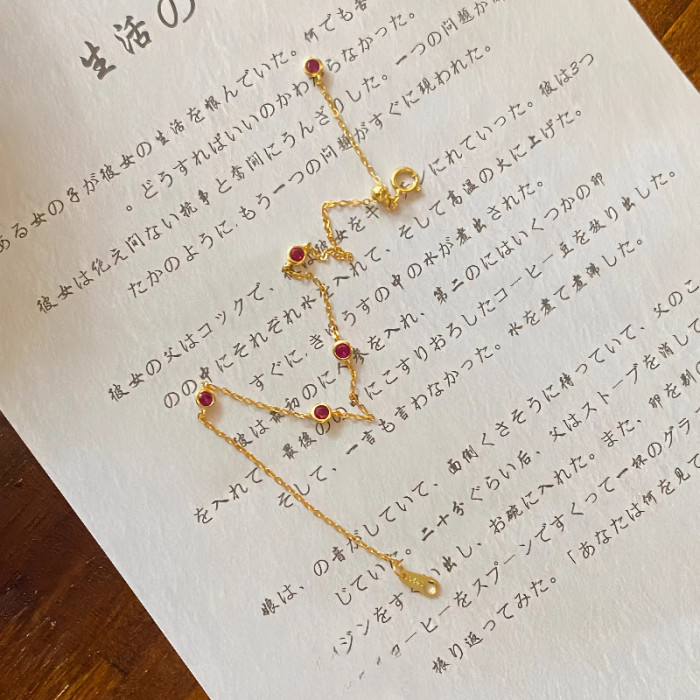 生活の
ある女の子が彼女の生活を恨んでいた。何でも
。どうすればいいのかわ らなかった。
彼女は絶え間ない抗争と奮闘にうんざりした。一つの問題が
たかのように、もう一つの問題がすぐに現われた。
彼女の父はコックで、 は彼女をキ にれていった。彼は3つ
のの中にそれぞれ水を入れて、そして高温の火に上げた。
すぐに、きゅうすの中の水が煮出された。
彼は最初のに 参を入れ、第二のにはいくつかの卵
を入れて、最後の にこすりおろしたコーヒー豆を放り出した。
そして、一言も言わなかった。水を煮て煮沸した。
の音が していて、面倒くさそうに待っていて、父のこ
眼は、 じていた。二十分ぐらい后、父はストーブを消して
ジンをす い出し、お碗に入れた。また、卵を
コーヒーをスプーンですくって一杯のグラ
振り返ってみた。「あなたは何を見て